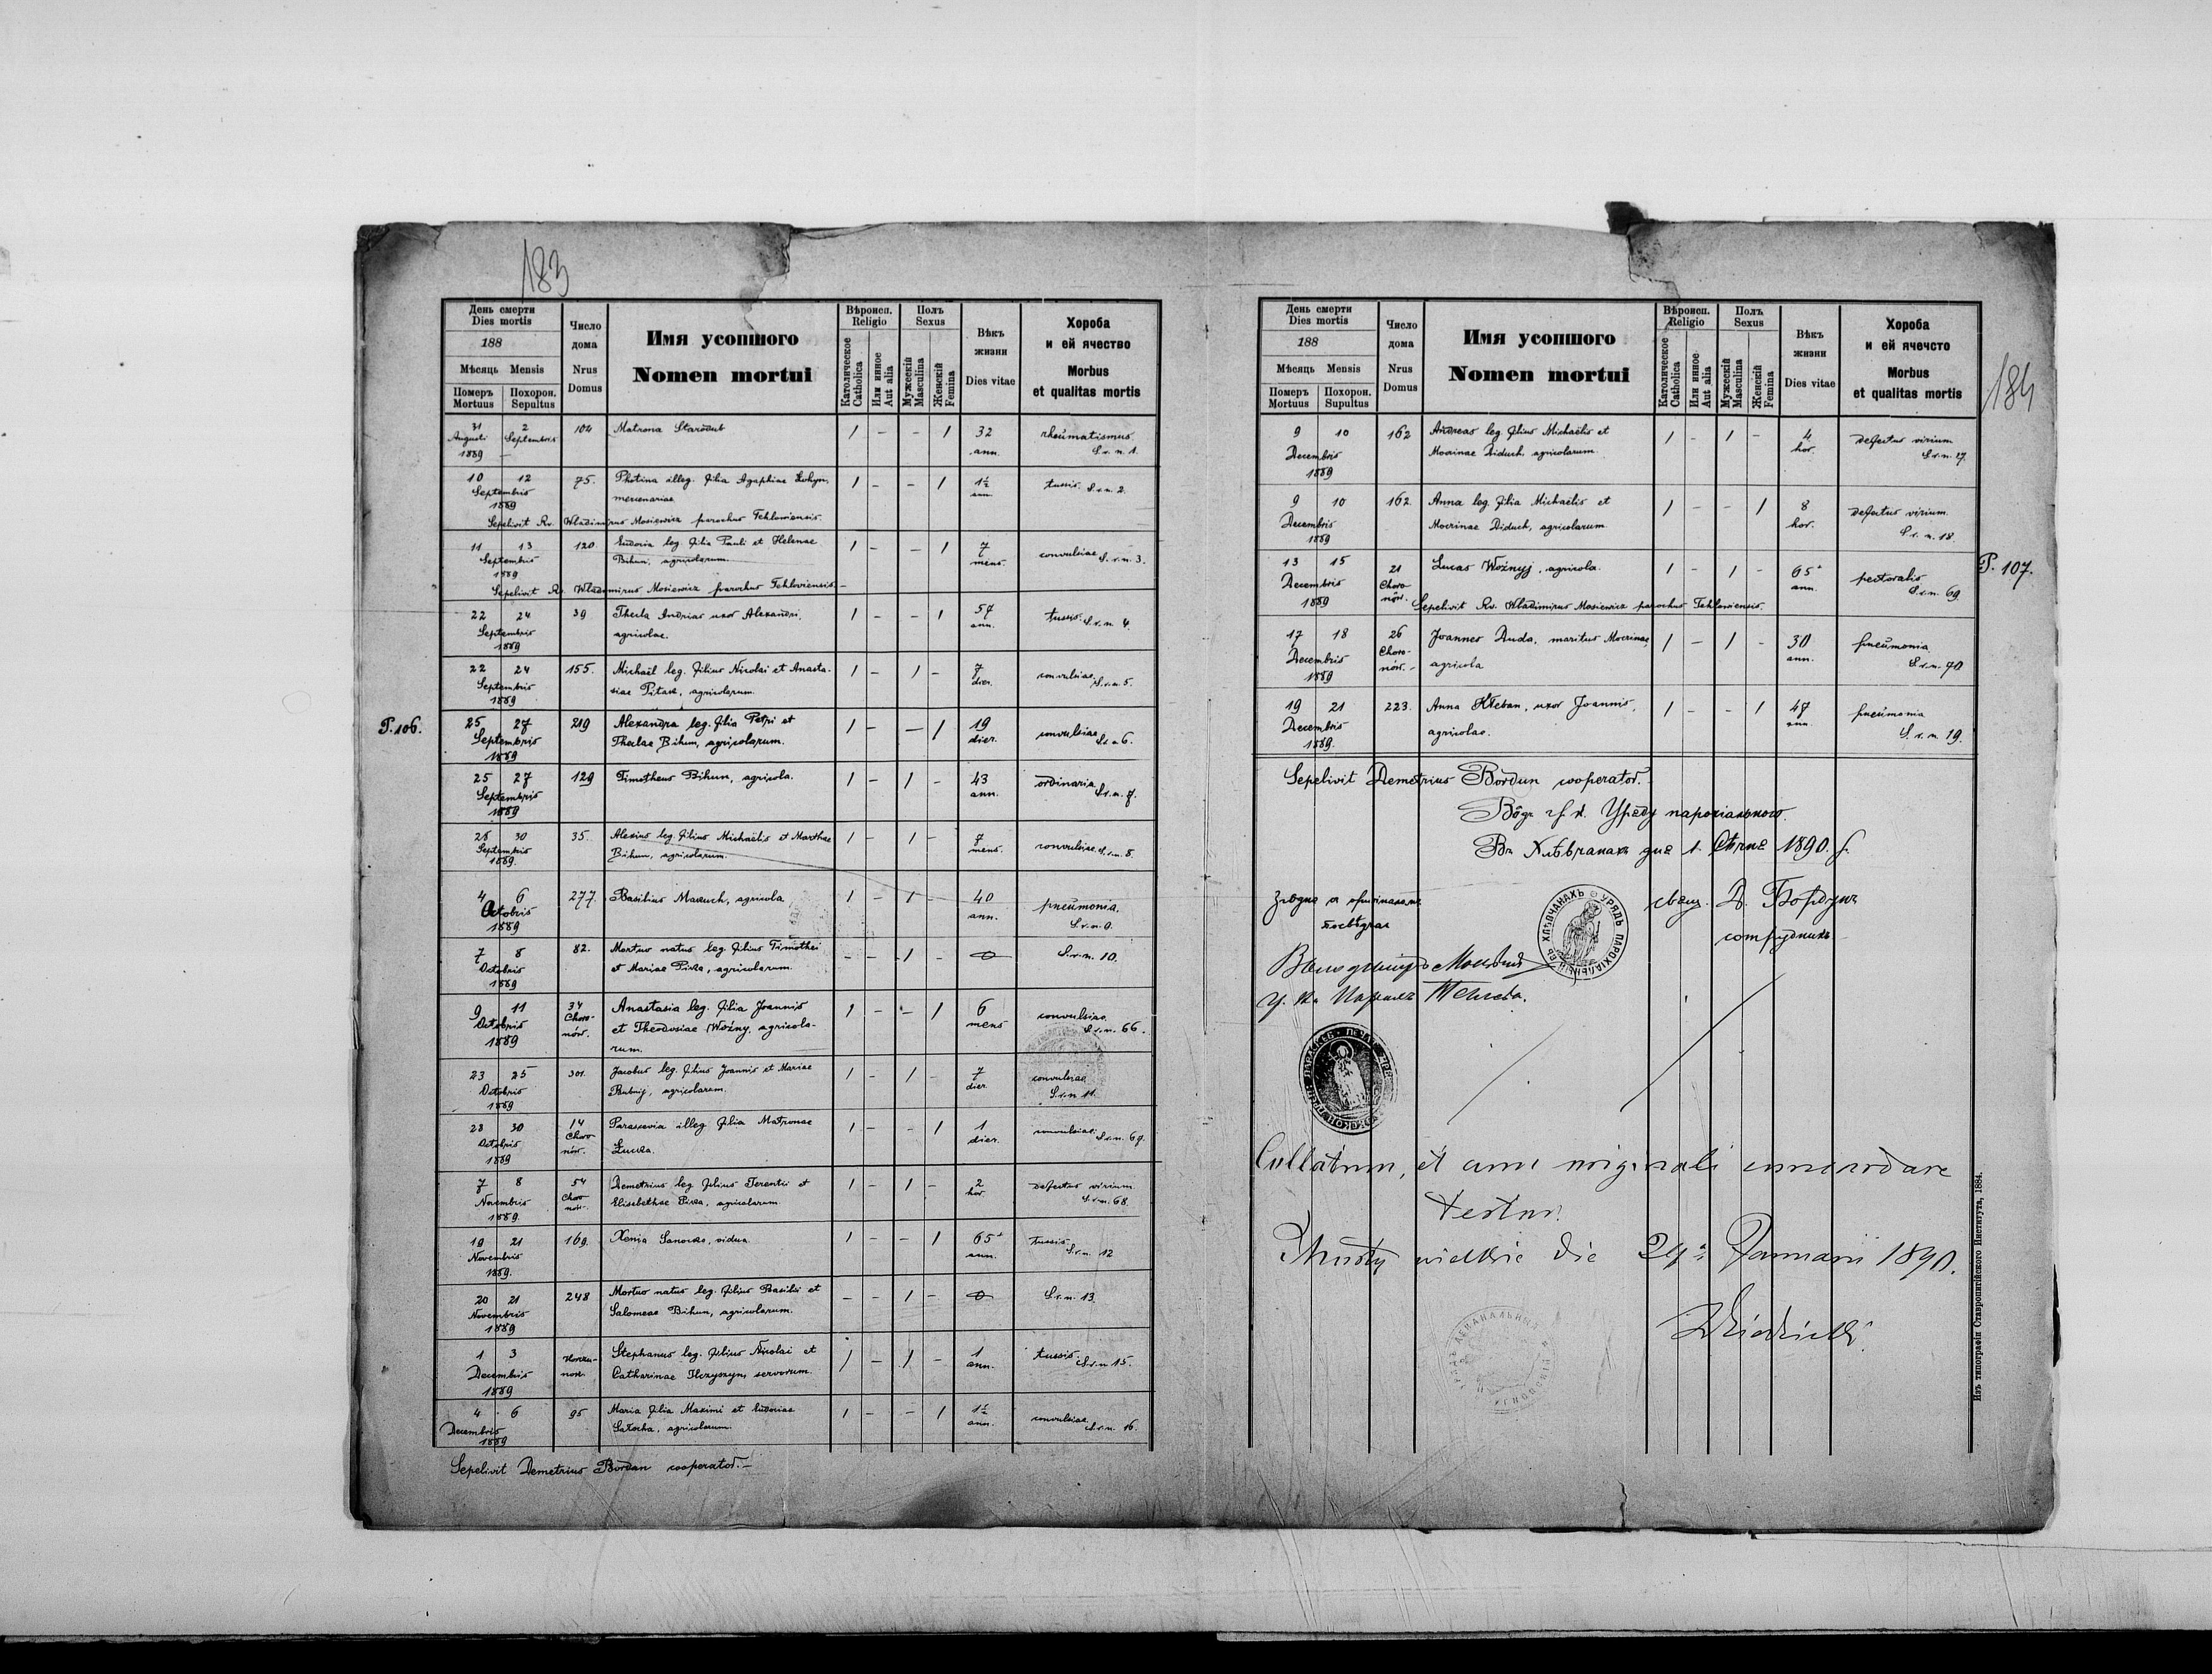 183
День смерти
Dies mortis
188
Мѣсяць Mensis
Померъ Mortuus
Похорон. Sepultus
Число дома
Nrus Domus
Имя усопшого
Nomen mortui
Вѣроисп.
Religio
Католическое Catholica
Или инное Aut alia
Полъ
Sexus
Мужескій Masculina
Женскій Femina
Вѣкъ жизни
Dies vitae
Хороба и ей ячество
Morbus et qualitas mortis
31 2 104 Matrona Starosub 1 - - 1 32 rheumatismus
Augusti Septembris ann. S.v.n. 1.
1889
10 12 75. Photina illeg. filia Agaphiae 1 - - 1 1½ tussis. S.v.n. 2.
Septembris mercenariae ann.
1889
Sepelivit Rv. Wladimirus Mosiewicz parochus Tehloviensis.
11 13 120. Eudoxia leg. filia Pauli et Helenae 1 - - 1 7 convulsiae S.v.n. 3.
Septembris Bihun, agricolarum. mens.
1889
Sepelivit Rv. Wladimirus Mosiewicz parochus Tehloviensis.-
22 24 39 Thecla Andrias uxor Alexandri, 1 - - 1 57 tussis. S.v.n. 4.
Septembris agricolae. ann.
1889
22 24 155. Michaël leg. filius Nicolai et Anasta- 1 - 1 - 7 convulsiae S.v.n. 5.
Septembris siae Pitack, agricolarum. dier.
1889
P. 106. 25 27 219 Alexandra leg. filia Petri et 1 - - 1 19 convulsiae S.v.n. 6.
Septembris Theclae Bihun, agricolarum. dier.
1889
25 27 129 Timotheus Bihun, agricola. 1 - 1 - 43 ordinaria S.v.n. 7.
Septembris ann.
1889
28 30 35. Alexius leg. filius Michaëlis et Marthae 1 - 1 - 7 convulsiae S.v.n. 8.
Septembris Bihun, agricolarum. mens.
1889.
4 6 277. Basilius agricola 1 - 1 - 40 pneumonia.
Octobris ann. S.v.n. 9.
1889
7 8 82. Mortuo natus leg. filius Timothei - - 1 - 0 S.v.n. 10.
Octobris et Mariae Pirka, agricolarum.
1889
9 11 34 Anastasia leg. filia Joannis 1 - - 1 6 convulsiae
Octobris Choro- et Theodosiae Woźny, agricola- mens S.v.n. 66.
1889 nów. rum.
23 25 301. Jacobus leg. filius Joannis et Mariae 1 - 1 - 7 convulsiae
Octobris agricolarum. dier S.v.n. 11.
1889
28 30 14 Parascevia illeg. filia Matronae 1 - - 1 1 convulsiae. S.v.n. 67.
Octobris Choro- Łucka. dier.
1889 nów.
7 8 54 Demetrius leg. filius Terentii et 1 - 1 - 2 defectus virium
Novembris Choro- Elisabethae Pirka, agricolarum. hor. S.v.n. 68.
1889. nów.
19 21 169. Xenia Sanocka, vidua 1 - - 1 65 tussis S.v.n. 12
Novembris ann.
1889.
20 21 248 Mortuo natus leg. filius Basilii et - - 1 - 0 S.v.n. 13.
Novembris Salomeae Bihun, agricolarum.
1889
1 3 Stephanus leg. filius Nicolai et 1 - 1 - 1 tussis. S.v.n. 15.
Decembris Catharinae Ilczyszyn, servorum. ann.
1889
4 6 95 Maria filia Maximi et Eudoxiae 1 - - 1 1½ convulsiae S.v.n. 16.
Decembris agricolarum. ann.
1889
Sepelivit Demetrius Bordun cooperator.-
184
День смерти
Dies mortis
188
Мѣсяць Mensis
Померъ Mortuus
Похорон. Supultus
Число дома
Nrus Domus
Имя усопшого
Nomen mortui
Вѣроисп.
Religio
Католическое Catholica
Или инное Aut alia
Полъ
Sexus
Мужескій Masculina
Женскій Femina
Вѣкъ жизни
Dies vitae
Хороба и ей ячечсто
Morbus et qualitas mortis
9 10 162 Andreas leg. filius Michaëlis et 1 - 1 - 4 defectus virium
Decembris Mocrinae Diduch agricolarum. hor. S.v.n. 17.
1889
9 10 162. Anna leg. filia Michaëlis et 1 - - 1 8 defectus virium.
Decembris Mocrinae Diduch, agricolarum. hor. S.v.n. 18.
1889
13 15 21 Lucas Woźnyj, agricola. 1 - 1 - 65 pectoralis P. 107.
Decembris Choro- ann. S.v.n. 69
1889 nów. Sepelivit Rv. Wladimirus Mosiewicz parochus Tehloviensis.
17 18 26 Joannes Duda, maritus Mocrinae, 1 - 1 - 30 pneumonia
Decembris Choro- agricola ann. S.v.n. 70
1889 nów.-
19 21 223. Anna Kłeban, uxor Joannis, 1 - - 1 47 pneumonia
Decembris agricolae. ann. S.v.n. 19.
1889.
Sepelivit Demetrius Bordun cooperator.
Уряду парохіального.
Въ Хлѣвчанахъ дня 1. Сѣчня 1890. р.
свящ. Д. Бордунъ
сотрудникъ
УРЯДЪ ПАРОХІАЛЬНЫЙ ВЪ ХЛѢВЧАНАХЪ
Collatum, et cum originali concordare
testor.
die 24. Januarii 1890.
Изъ типографіи Ставропигійского Института, 1884.